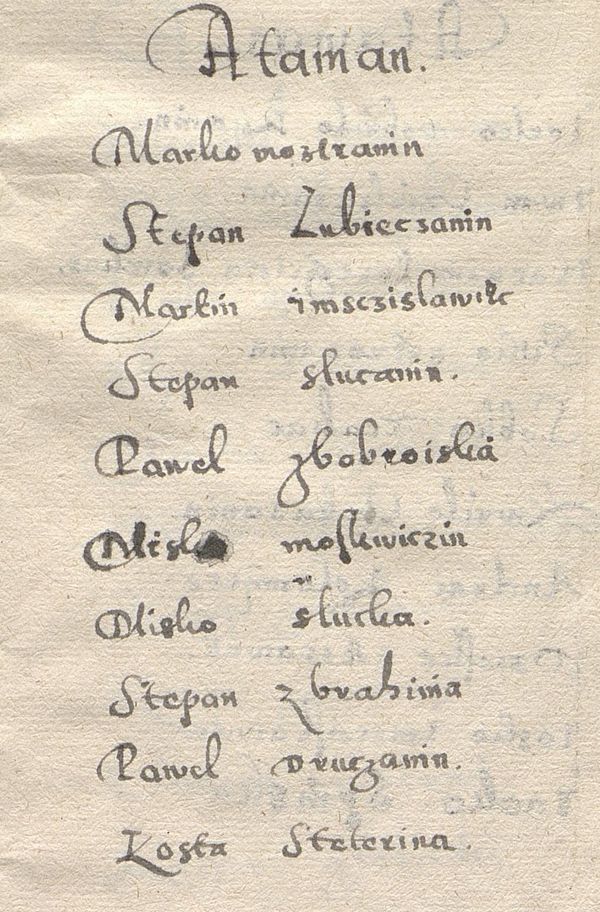 Ataman.
Marko mozeranin
Stepan Lubieczanin
Martin imsczislawic
Stepan slucanin.
Pawel zbobroiska
Misko moskwiczin
Misko slucka.
Stepan z brahinia
Pawel druczanin.
Kosta Steterina.